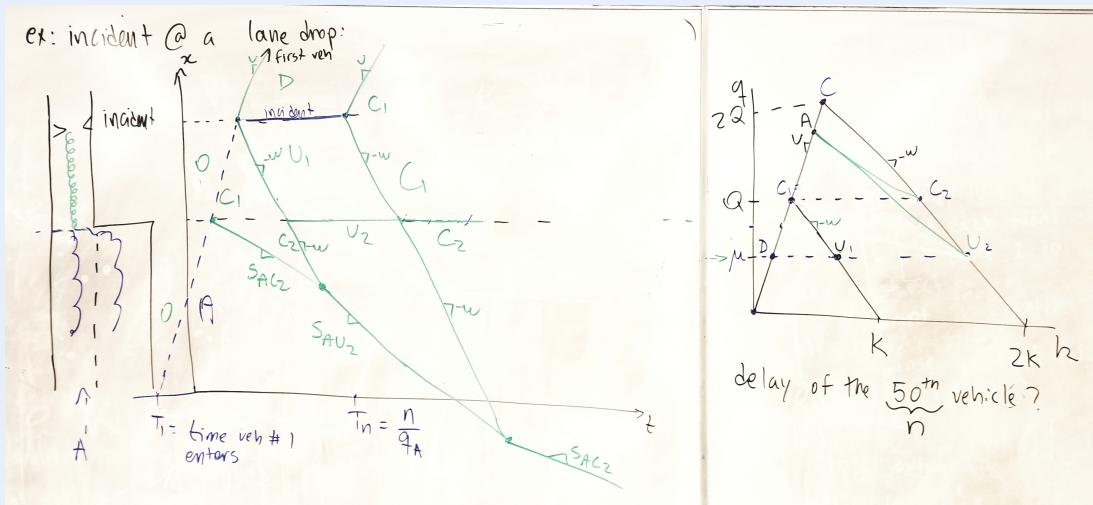 ex: incident @ a lane drop:
x
v
first veh
D
v
incident
C1
incident
-w
U1
-w
O
C1
C1
U2
C2
C2
-w
SAC2
-w
O
A
SAU2
T1 = time veh #1
enters
Tn = n/qA
t
A
SAC2
q
2Q
C
A
v
-w
Q
C1
C2
-w
μ
D
U1
U2
K
2K
k
delay of the 50th vehicle?
n